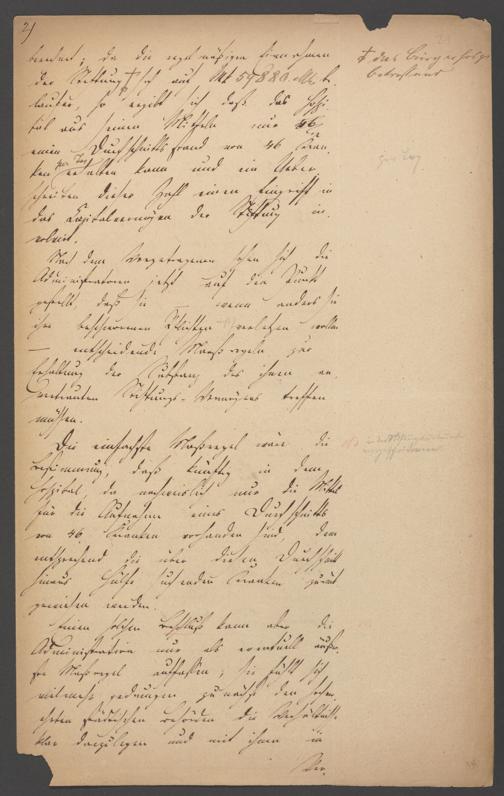 2)
† das Bürgerhosp.
betreffend
da die regelmäßigen Einnahmen
der Stiftung † sich auf M 59880.
laufen, so ergibt sich daß das Hospi-
tal aus seinen Mitteln nur
einen Durchschnittsstand von 46 Kran-
ken pro Tag erhalten kann und ein Ueber-
schreiten dieser Zahl einen Eingriff in
das Kapitalvermögen der Stiftung in-
volvirt.
Nach dem Vorgetragenen sehen sich die
Administratoren jetzt auf den Punkt
gestellt, daß sie — wenn anders sie
ihre beschworenen Pflichten verletzen wollen
— entscheidende Maaßregeln zur
Erhaltung der Substanz des ihnen an-
vertrauten Stiftungs-Vermögens treffen
müssen.
Die einfachste Maßregel wäre die
Bestimmung, daß künftig in dem
Hospital, da nur die Mittel
für die Aufnahme eines Durchschnitts
von 46 Kranken vorhanden sind, dem
entsprechend die über diesen Durchschnitt
hinaus Hülfe suchenden Kranken zurück
gewiesen werden.
Einen solchen Beschluß kann aber die
Administration nur als eventuell äußer-
ste Maßregel auffassen; sie fühlt sich
vielmehr gedrungen zunächst den
städtischen Behörden die Verhältnisse
klar darzulegen und mit ihnen in